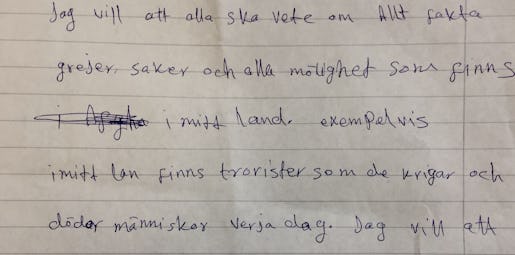 Jag vill att alla ska vete om Allt fakta
grejer, saker och alla mölighet sons finns
i mitt land. exempelvis
imitt lan finns trorister som de krigar och
dödar människor verja dag. Jag vill att